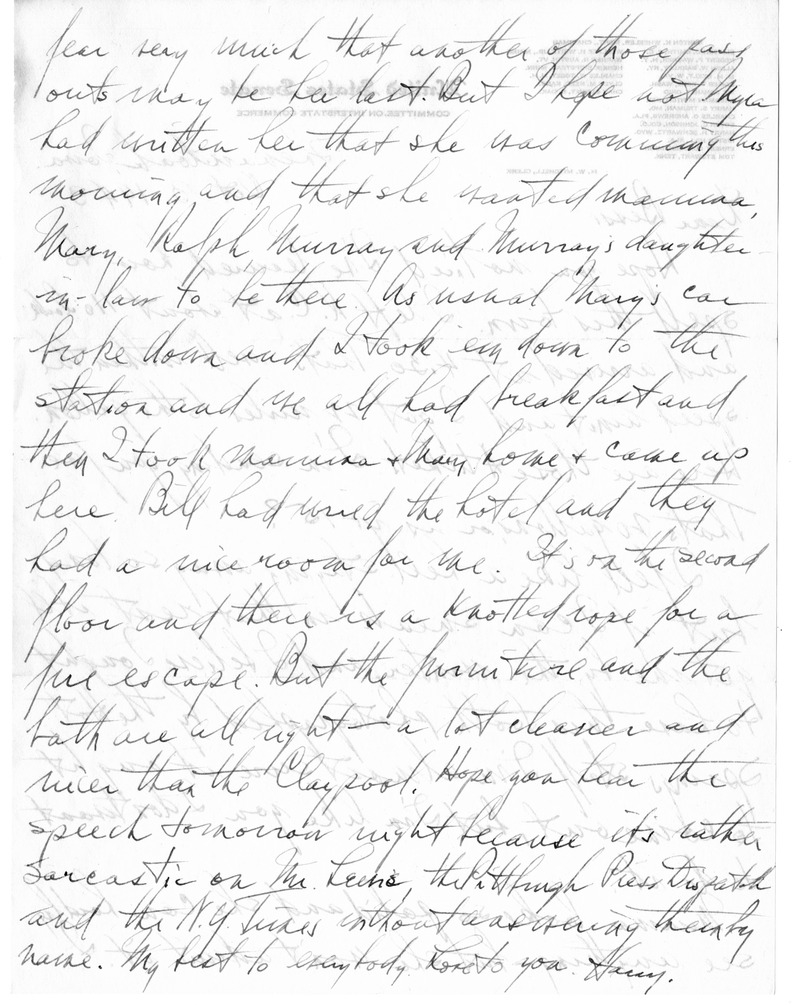 fear very much that another of those pass
outs may be her last. But I hope not Myra
had written her that she was comming this
morning and that she wanted mamma,
Mary, Ralph Murray and Murray's daughter-
in-law to be there. As usual Mary's car
broke down and I took 'em down to the
station and we all had breakfast and
then I took mamma & Mary home & came up
here. Bill had wired the hotel and they
had a nice room for me. It's on the second
floor and there is a knotted rope for a
fire escape. But the furniture and the
bath are all right — a lot cleaner and
nicer than the Claypool. Hope you hear the
speech tomorrow night because it's rather
sarcastic on Mr. Lewis, the Pittburgh Press Dispatch
and the N.Y. Times without answering them by
name. My best to everybody love to you. Harry.
United States Senate
COMMITTEE ON INTERSTATE COMMERCE